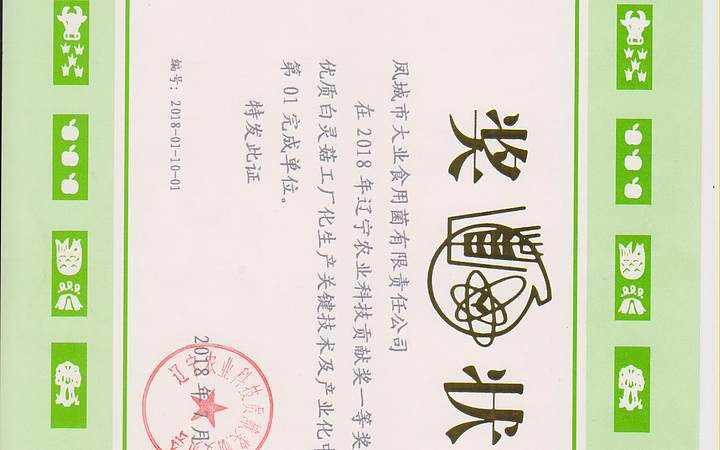 奖状
凤城市大业食用菌有限责任公司
在2018年辽宁农业科技贡献奖一等奖
优质白灵菇工厂化生产关键技术及产业化中
第01完成单位。
特发此证
编号：2018-01-10-01
辽宁农业科技贡献奖
2018年7月